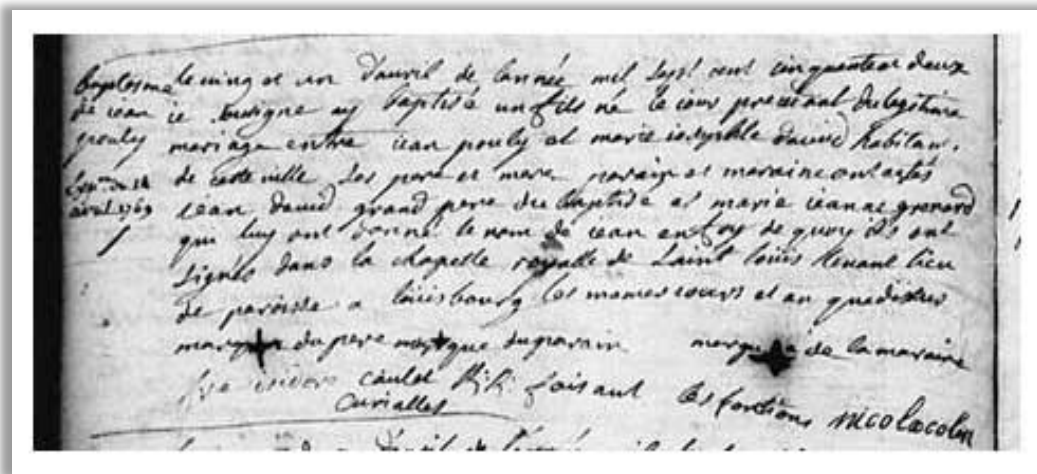 baptesme le vingt et un d'avril de lannée mil sept cent cinquante et deux
de iean ie sousigne ay baptisé un fils né le iour precedant du legitime
pouly mariage entre iean pouly et marie iosephle david habitan.
de cette ville les pere et mere parain et maraine ont estés
avril 1769 iean david grand pere du baptisé et marie ieanne grenard
qui luy ont donné le nom de iean en foy de quoy ils ont
signés dans la chapelle royalle de saint loüis tenant lieu
de paroisse a loüisbourg les memes iours et an que dessus
marque du pere marque du parain marque de la maraine
isidore caulet faisant les fontions nicolas colin
curialles